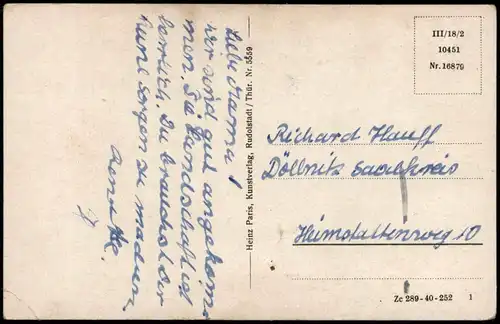 Liebe Mama!
wir sind gut angekom-
men. Die Landschaft ist
herrlich. Du brauchst dir
keine Sorgen zu machen.
Renate
Heinz Paris, Kunstverlag, Rudolstadt/Thür. Nr. 5559
III/18/2
10451
Nr. 16879
Richard Hauff
Döllnitz Saalkreis
Heimstättenweg 10
Zc 289-40-252 1